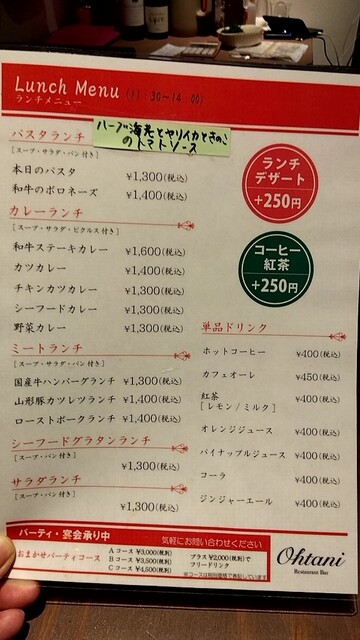 Lunch Menu (11:30~14:00)
ランチメニュー
パスタランチ
[スープ・サラダ・パン付き]
ハーブ海老とヤリイカときのこ
のトマトソース
本日のパスタ ¥1,300(税込)
和牛のボロネーズ ¥1,400(税込)
カレーランチ
[スープ・サラダ・ピクルス付き]
和牛ステーキカレー ¥1,600(税込)
カツカレー ¥1,400(税込)
チキンカツカレー ¥1,300(税込)
シーフードカレー ¥1,300(税込)
野菜カレー ¥1,300(税込)
ミートランチ
[スープ・サラダ・パン付き]
国産牛ハンバーグランチ ¥1,300(税込)
山形豚カツレツランチ ¥1,400(税込)
ローストポークランチ ¥1,400(税込)
シーフードグラタンランチ
[スープ・パン付き]
¥1,300(税込)
サラダランチ
[スープ・パン付き]
¥1,300(税込)
ランチ
デザート
+250円
コーヒー
紅茶
+250円
単品ドリンク
ホットコーヒー ¥400(税込)
カフェオーレ ¥450(税込)
紅茶 ¥400(税込)
[レモン / ミルク]
オレンジジュース ¥400(税込)
パイナップルジュース ¥400(税込)
コーラ ¥400(税込)
ジンジャーエール ¥400(税込)
パーティ・宴会承り中 気軽にお問い合わせください
おまかせパーティコース
A コース ¥3,000(税別)
B コース ¥3,500(税別)
C コース ¥4,500(税別)
プラス¥2,000(税別)で
フリードリンク
Ohtani
Restaurant Bar